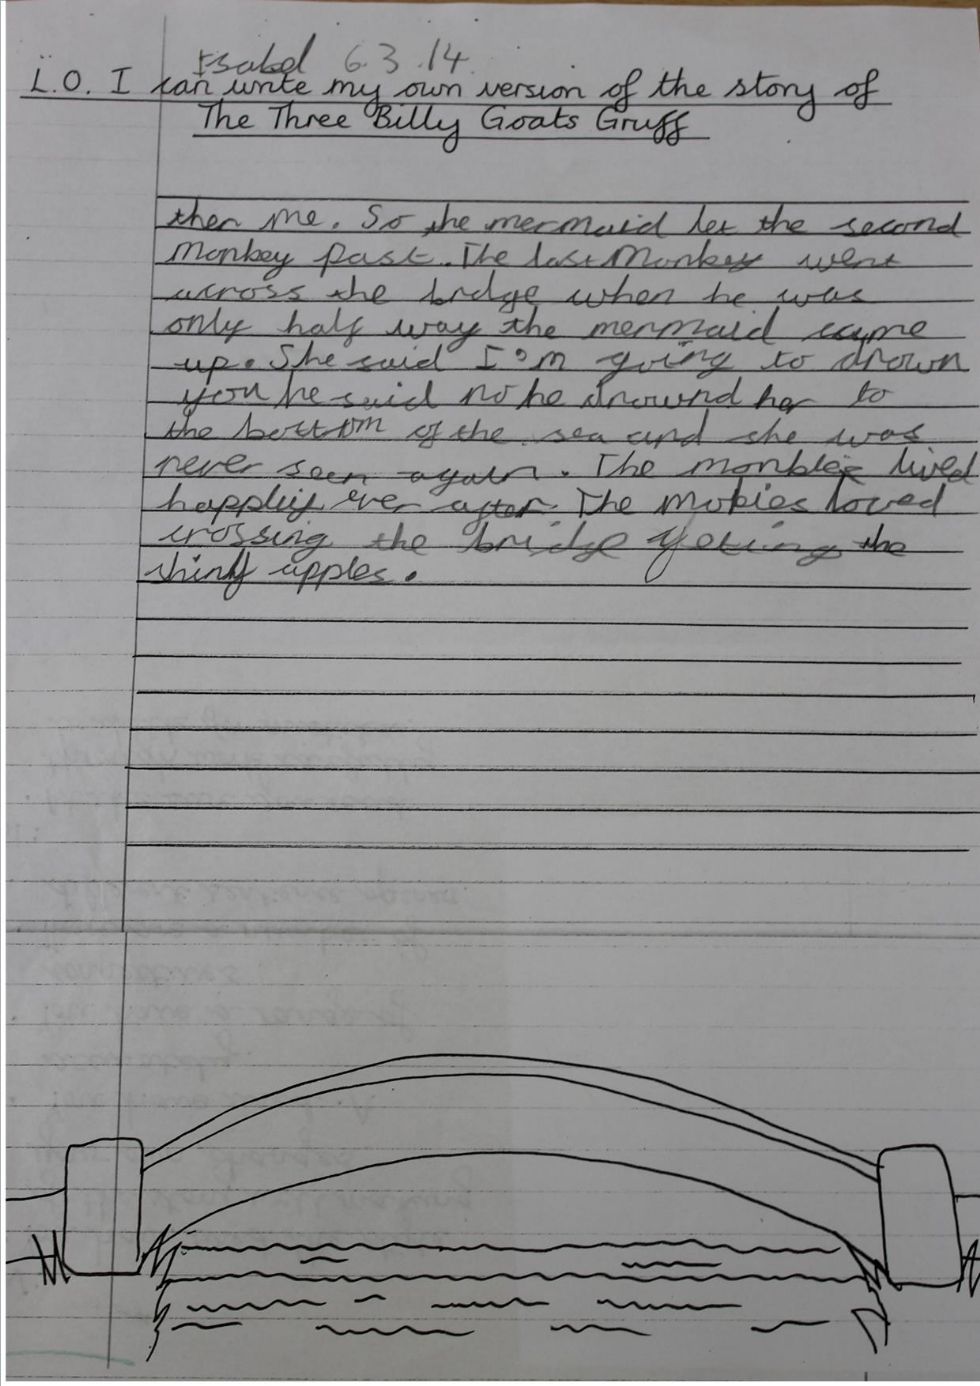 Isabel 6.3.14.
L.O. I can write my own version of the story of
The Three Billy Goats Gruff
then me. So the mermaid let the second
monkey past. The last Monkey went
across the bridge when he was
only half way the mermaid came
up. She said I'm going to drown
you he said no he drownd her to
the bottom of the sea and she was
never seen again. The monkie lived
happliy ever after. The mobies loved
crossing the bridge geting the
shiny apples.